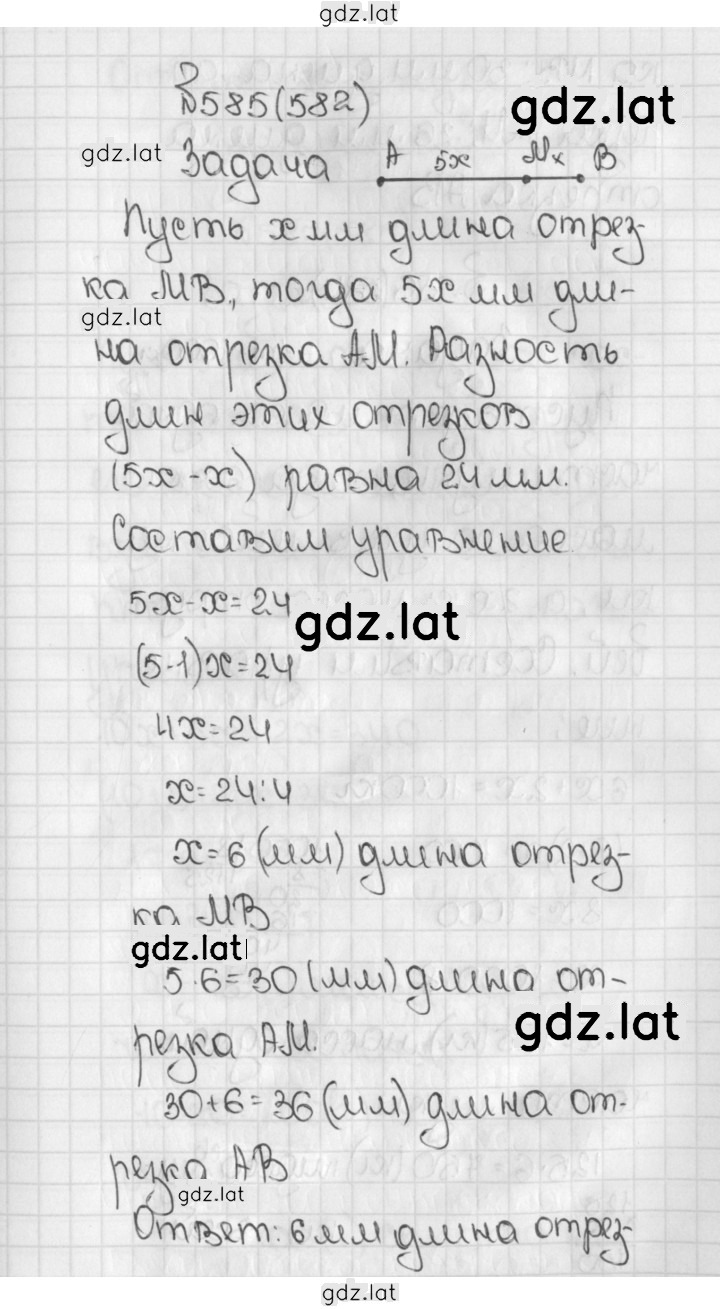 gdz.lat
№585(582)
gdz.lat
gdz.lat Задача A 5x M x B
Пусть x мм длина отрез-
ка МВ, тогда 5x мм дли-
gdz.lat
на отрезка АМ. Разность
длин этих отрезков
(5x-x) равна 24 мм.
Составим уравнение.
5x-x=24
gdz.lat
(5-1)x=24
4x=24
x=24:4
x=6 (мм) длина отрез-
ка МВ
gdz.lat
5·6=30 (мм) длина от-
gdz.lat
резка АМ.
30+6=36 (мм) длина от-
резка АВ
gdz.lat
Ответ: 6 мм длина отрез-
gdz.lat